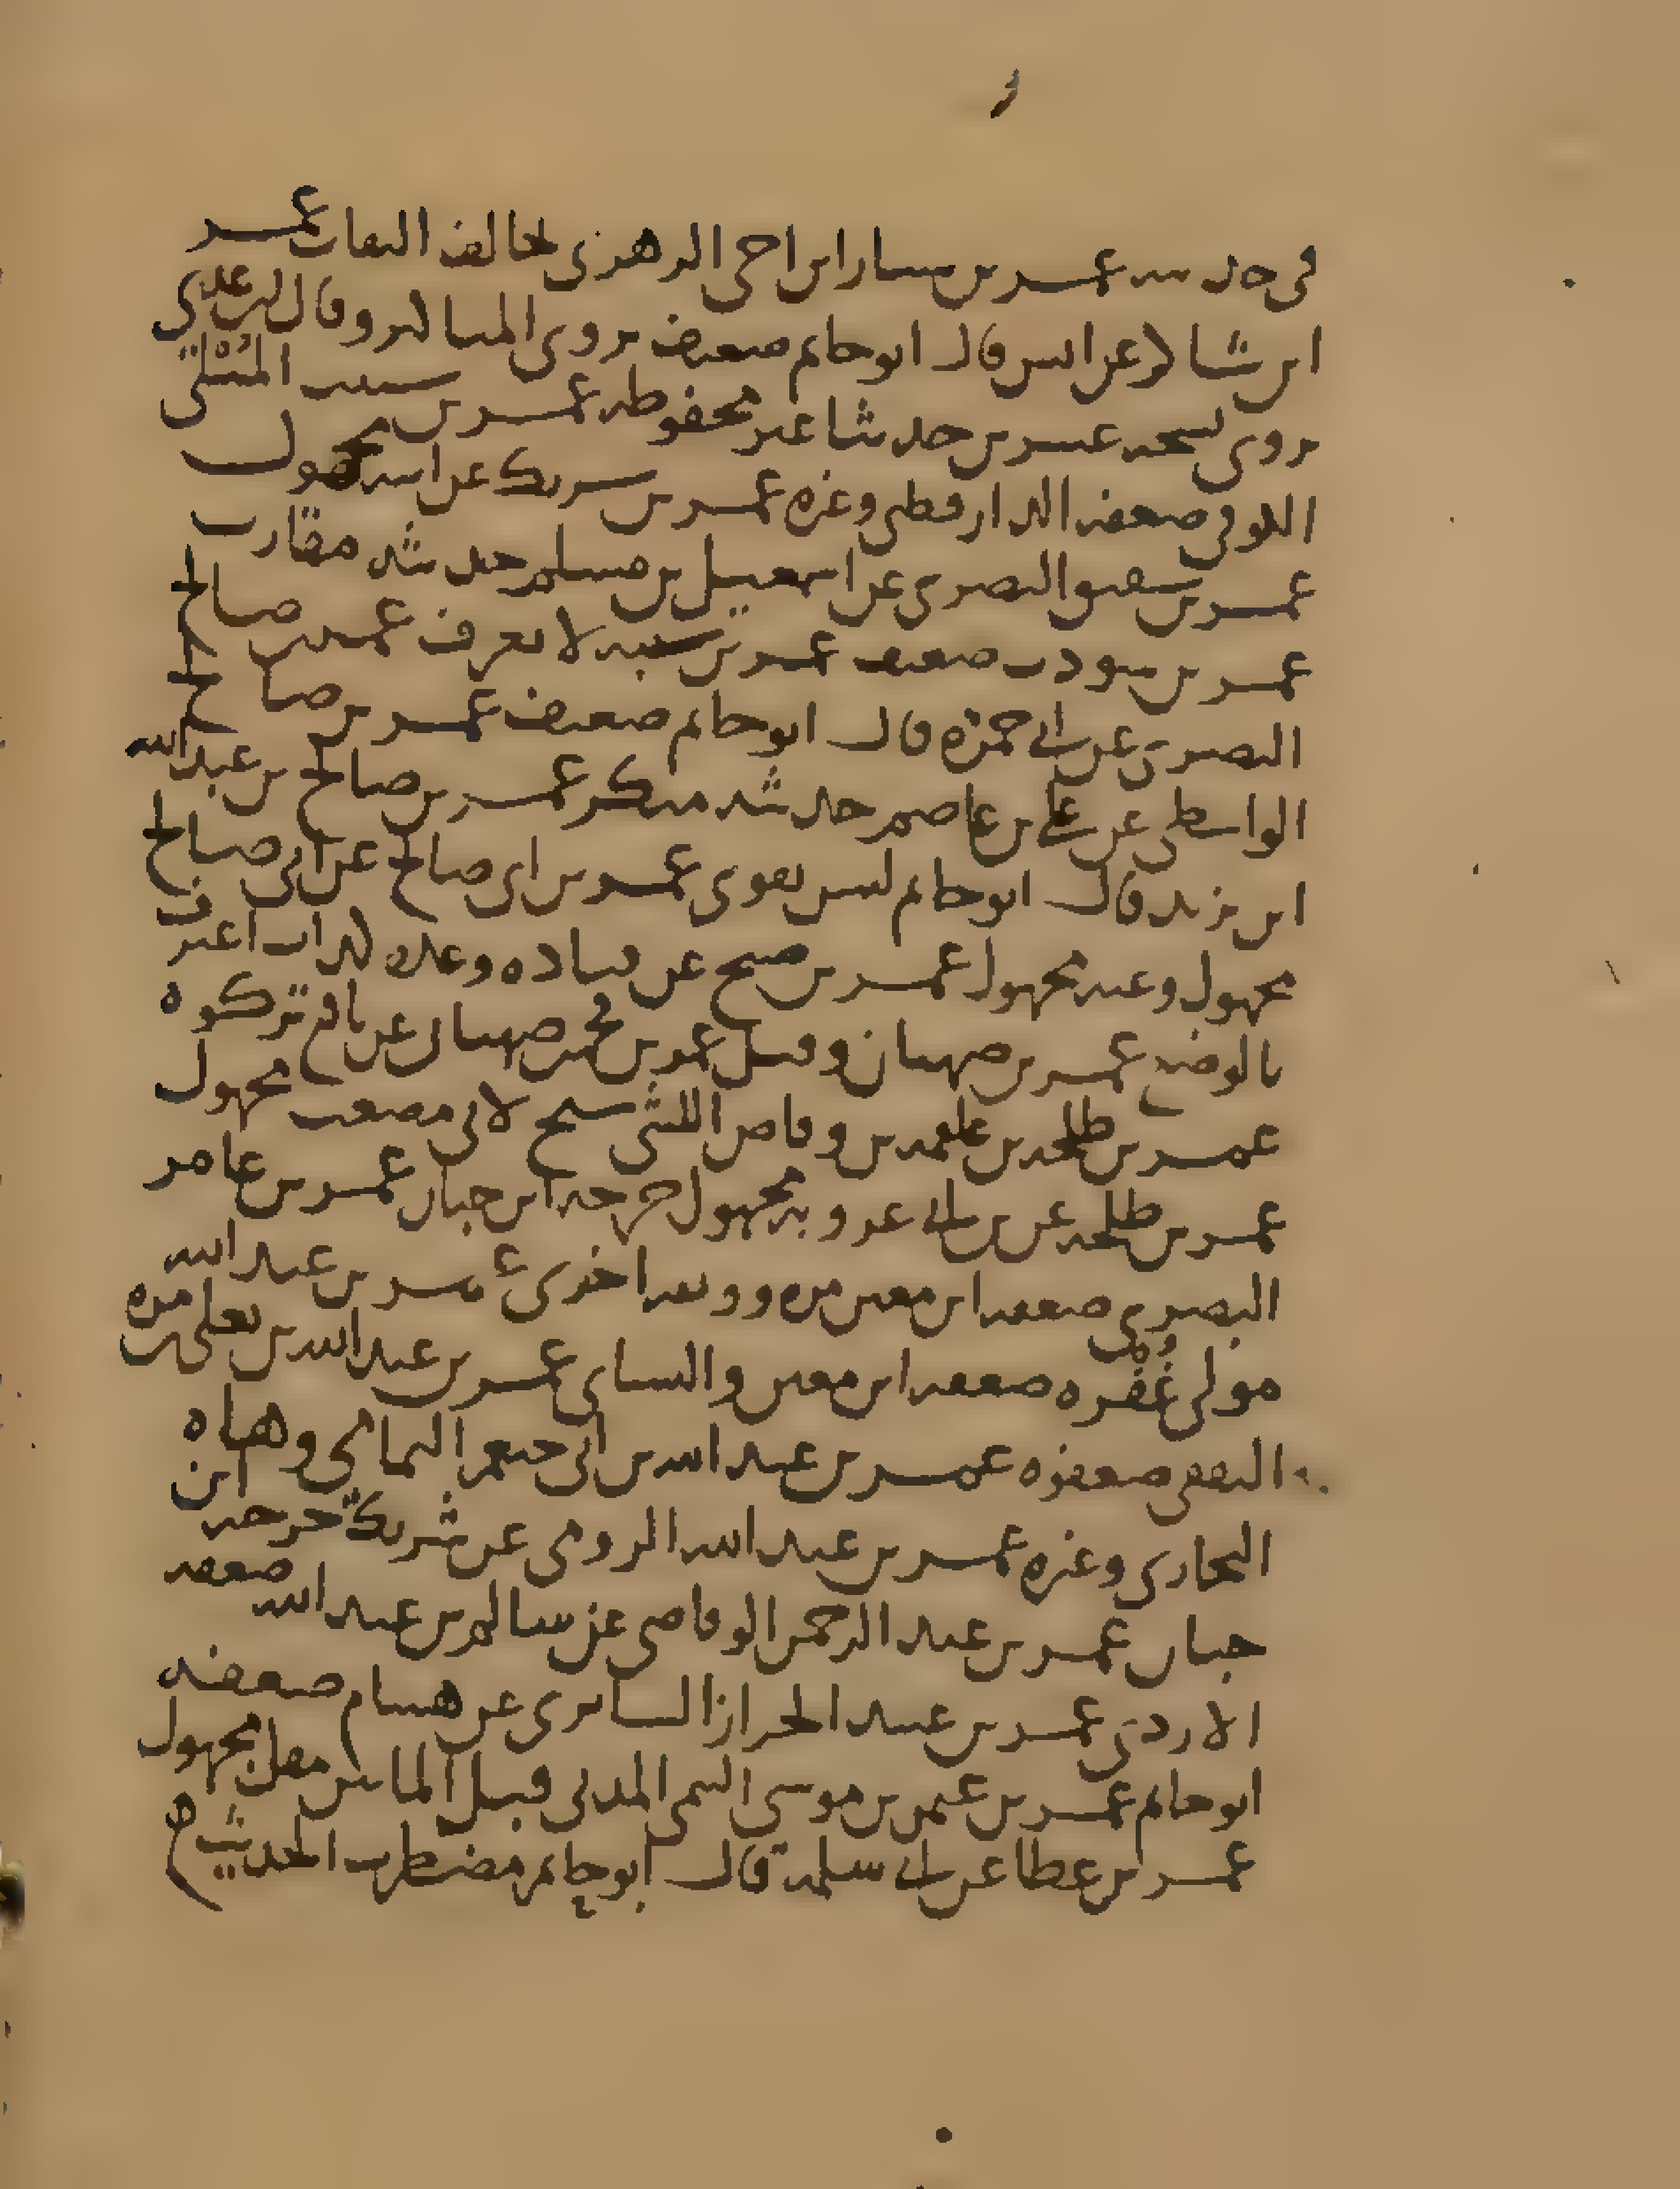 في حديثه عمر بن سيار ابن اخي الزهري يخالف الثقات عمر
ابن شاكر عن انس قال ابو حاتم ضعيف يروي المناكير وقال ابن عدي
يروي نسخة عشرين حديثا غير محفوظة عمر بن شبيب المُسْلي
الكوفي ضعفه الدارقطني وغيره عمر بن شريك عن ابيه مجهول
عمر بن سفيان البصري عن اسمعيل بن مسلم حديثه مقارب
عمر بن شوذب ضعيف عمر بن شيبة لا يعرف عمر بن صالح
البصري عن ابي جمرة قال ابو حاتم ضعيف عمر بن صالح
الواسطي عن علي بن عاصم حديثه منكر عمر بن صالح بن عبد الله
ابن يزيد قال ابو حاتم ليس بقوي عمر بن ابي صالح عن ابي صالح
مجهول وعنه مجهول عمر بن صبح عن قتادة وعدة كذاب اعترف
بالوضع عمر بن صهبان وقيل عمر بن محمد بن صهبان عن نافع تركوه
عمر بن طلحة بن علقمة بن وقاص الليثي شيخ لابي مصعب مجهول
عمر بن طلحة عن بن ابي عروبة مجهول جرحه ابن حبان عمر بن عامر
البصري ضعفه ابن معين مرة ووثقه اخرى عمر بن عبد الله
مولى غُفْرة ضعفه ابن معين والنسائي عمر بن عبد الله بن يعلى بن مرة
الثقفي ضعفوه عمر بن عبد الله بن ابي خثعم اليمامي وهاه
البخاري وغيره عمر بن عبد الله الرومي عن شريك جرحه ابن
حبان عمر بن عبد الرحمن الوقاصي عن سالم بن عبد الله ضعفه
الازدي عمر بن عبيد الخزاز السابري عن هشام ضعفه
ابو حاتم عمر بن عمر بن موسى التيمي المدني قبيل الماتين مقل مجهول
عمر بن عطا عن ابي سلمة قال ابو حاتم مضطرب الحديث